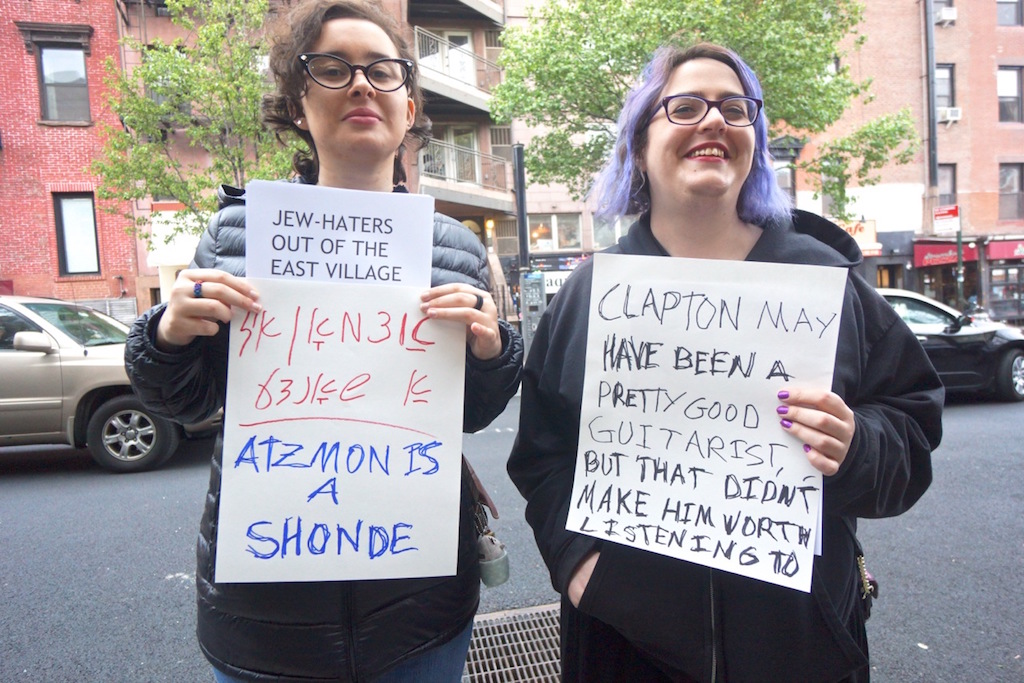 JEW-HATERS
OUT OF THE
EAST VILLAGE
אַצמאָן איז
אַ שאַנדע
ATZMON IS
A
SHONDE
CLAPTON MAY
HAVE BEEN A
PRETTY GOOD
GUITARIST,
BUT THAT DIDN'T
MAKE HIM WORTH
LISTENING TO